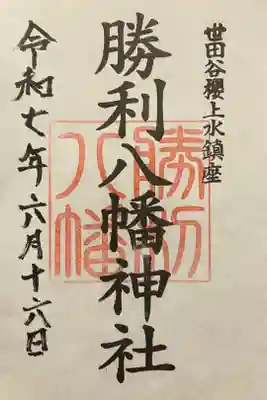 世田谷櫻上水鎮座
勝利八幡神社
令和七年六月十六日
勝利
八幡